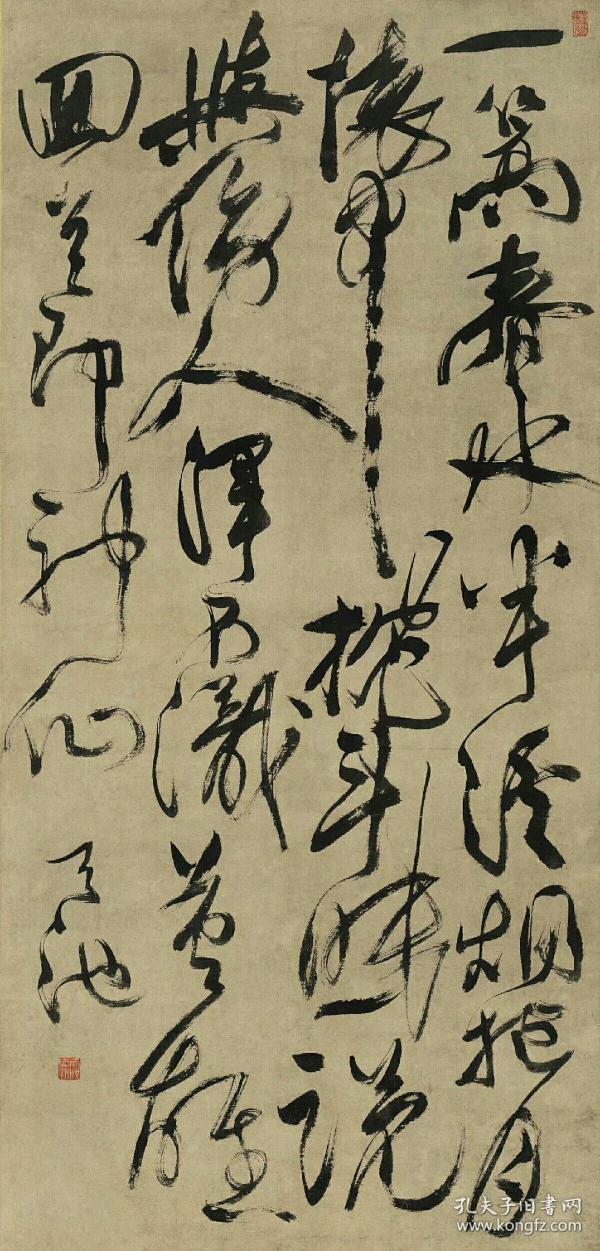 一篙春水半溪烟抱月
懷中枕斗眠說
與傍人渾不識英雄
回首即神仙
天池
孔夫子旧书网
www.kongfz.com